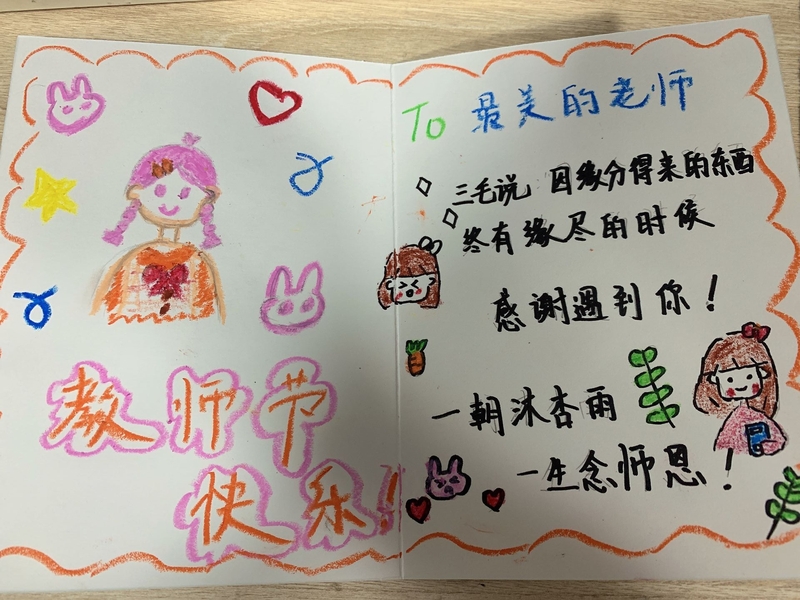 教师节
快乐！
To 最美的老师
三毛说 因缘分得来的东西
终有缘尽的时候
感谢遇到你！
一朝沐杏雨
一生念师恩！